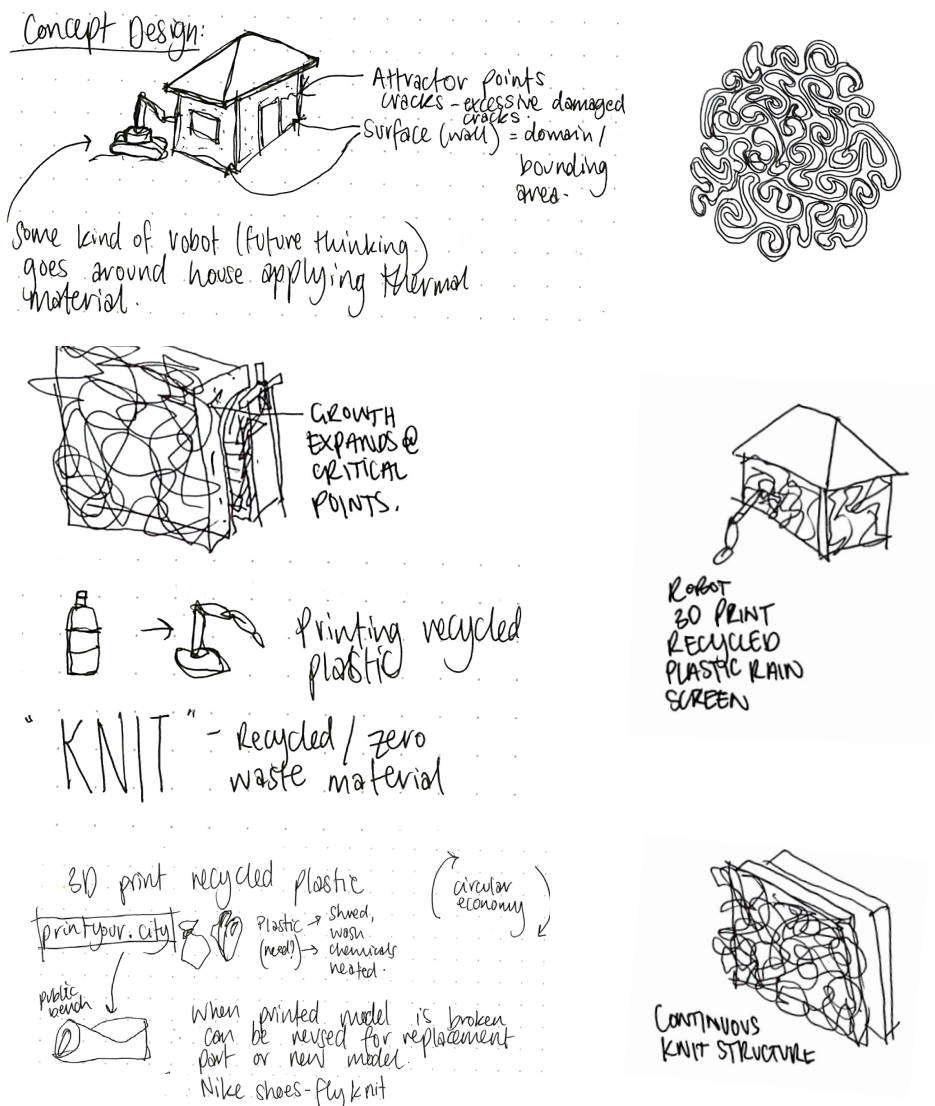 Concept Design:
Attractor points
cracks - excessive damaged
cracks.
Surface (wall) = domain/
bounding
area.
Some kind of robot (future thinking)
goes around house applying thermal
material.
GROWTH
EXPANDS @
CRITICAL
POINTS.
ROBOT
3D PRINT
RECYCLED
PLASTIC RAIN
SCREEN
Printing recycled
plastic
"KNIT" - Recycled / zero
waste material
3D print recycled plastic
circular
economy
printyour.city
Plastic → shred,
wash
(need?) → chemicals
heated.
public
bench
When printed model is broken
can be reused for replacement
part or new model.
Nike shoes - flyknit
CONTINUOUS
KNIT STRUCTURE